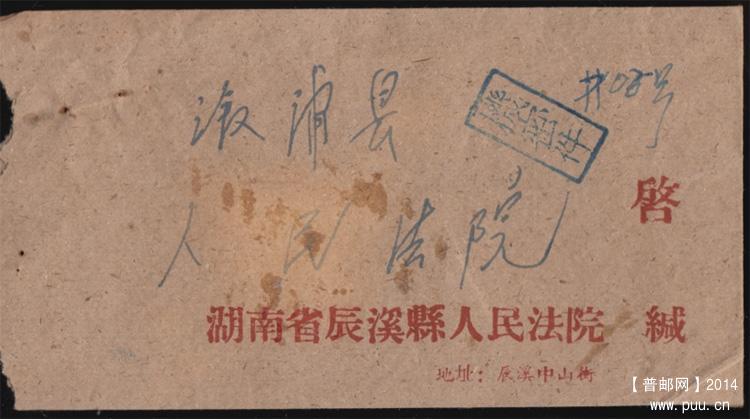 溆浦县
機密件
号
人民法院
啓
湖南省辰溪縣人民法院 緘
地址：辰溪中山街
【普邮网】2014
www.puu.cn